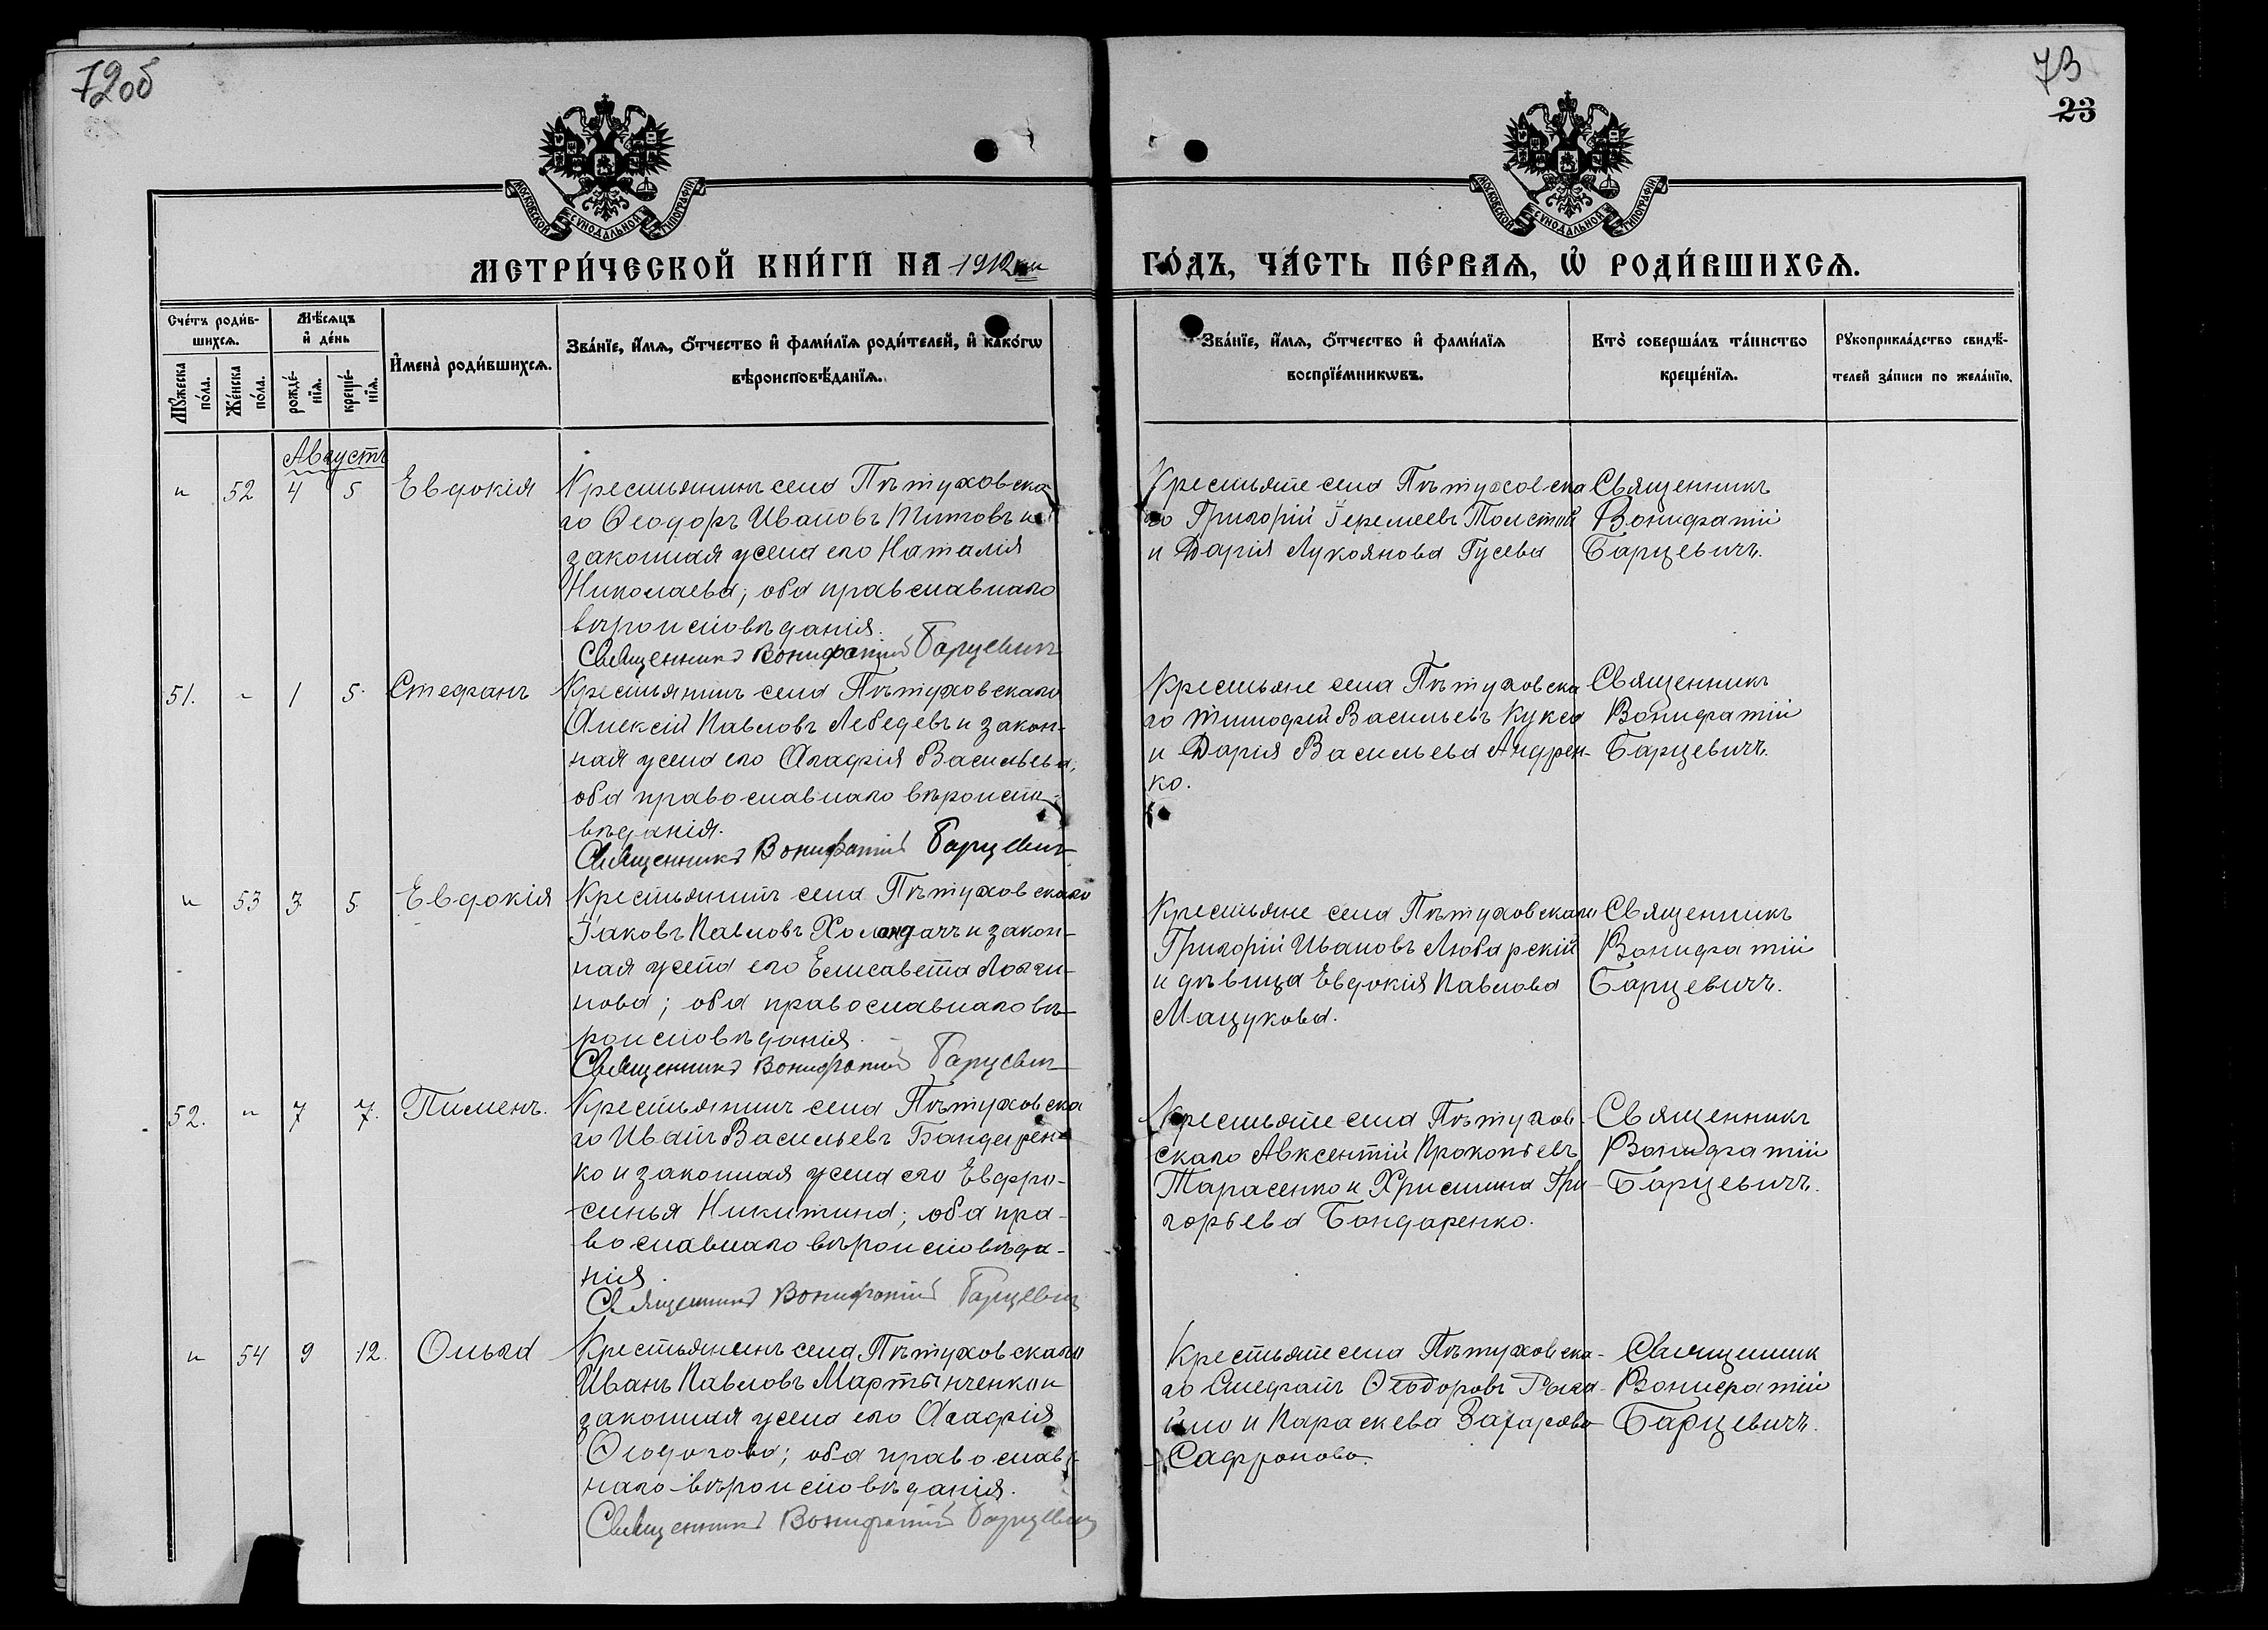 72об
73
23
МОСКОВСКОЙ СѴНОДАЛЬНОЙ ТИПОГРАФІИ
МОСКОВСКОЙ СѴНОДАЛЬНОЙ ТИПОГРАФІИ
МЕТРИ́ЧЕСКОЙ КНИ́ГИ НА 1912
ГО́ДЪ, ЧА́СТЬ ПЕ́РВАѦ, Ѡ҆ РОДИ́ВШИХСѦ.
Сче́тъ роди́вшихсѧ.
Мꙋ́жеска по́ла.
Же́нска по́ла.
Мѣ́сѧцъ и҆ де́нь
рожде́нїѧ.
креще́нїѧ.
И҆мена̀ роди́вшихсѧ.
Зва́нїе, и҆́мѧ, ѻ҆́тчество и҆ фами́лїѧ роди́телей, и҆ како́гѡ
вѣроисповѣ́данїѧ.
Зва́нїе, и҆́мѧ, ѻ҆́тчество и҆ фами́лїѧ
воспрїе́мникѡвъ.
Кто̀ соверша́лъ та́инство
креще́нїѧ.
Рꙋкоприкла́дство свидѣ́-
телей за́писи по жела́нїю.
Августъ
" 52 4 5 Евдокія
Крестьянинъ села Пѣтуховска
го Ѳеодоръ Ивановъ Титовъ и
законная жена его Наталія
Николаева; оба православнаго
вѣроисповѣданія.
Священникъ Вонифатій Барцевичъ
Крестьяне села Пѣтуховска
го Григорій Іеремеевъ Толстой
и Дарія Лукоянова Гусева
Священникъ
Вонифатій
Барцевичъ.
51. " 1 5. Стефанъ
Крестьянинъ села Пѣтуховскаго
Алексій Павловъ Лебедевъ и закон-
ная жена его Агафія Васильева;
оба православнаго вѣроиспо-
вѣданія.
Священникъ Вонифатій Барцевичъ
Крестьяне села Пѣтуховска
го Тимофей Васильевъ Кукса
и Дарія Васильева Андрен-
ко.
Священникъ
Вонифатій
Барцевичъ.
" 53 3 5 Евдокія
Крестьянинъ села Пѣтуховскаго
Іаковъ Павловъ и закон-
ная жена его Елисавета Логи-
нова; оба православнаго вѣ-
роисповѣданія.
Священникъ Вонифатій Барцевичъ
Крестьяне села Пѣтуховскаго
Григорій Ивановъ Любарскій
и дѣвица Евдокія Павлова
Мацукова.
Священникъ
Вонифатій
Барцевичъ.
52. " 7 7. Пименъ.
Крестьянинъ села Пѣтуховска
го Иванъ Васильевъ Бондарен-
ко и законная жена его Евфро-
синья Никитина; оба пра-
вославнаго вѣроисповѣда-
нія.
Священникъ Вонифатій Барцевичъ
Крестьяне села Пѣтухов-
скаго Авксентій Прокопьевъ
Тарасенко и Христина Гри-
горьева Бондаренко.
Священникъ
Вонифатій
Барцевичъ.
" 54 9 12. Ольга
Крестьянинъ села Пѣтуховскаго
Иванъ Павловъ Мартынченко и
законная жена его Агафія
Ѳеодорова; оба православ-
наго вѣроисповѣданія.
Священникъ Вонифатій Барцевичъ
Крестьяне села Пѣтуховска-
го Стефанъ Ѳеодоровъ
и Параскева Захарова
Сафронова.
Священник
Вонифатій
Барцевичъ.